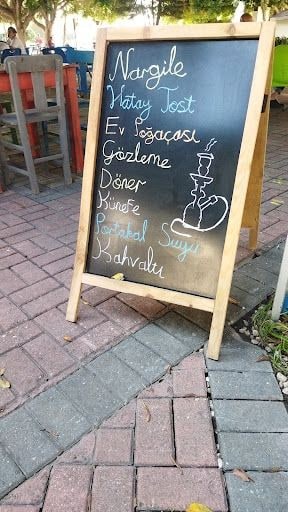 Nargile
Hatay Tost
Ev Poğaçası
Gözleme
Döner
Künefe
Portakal Suyu
Kahvaltı